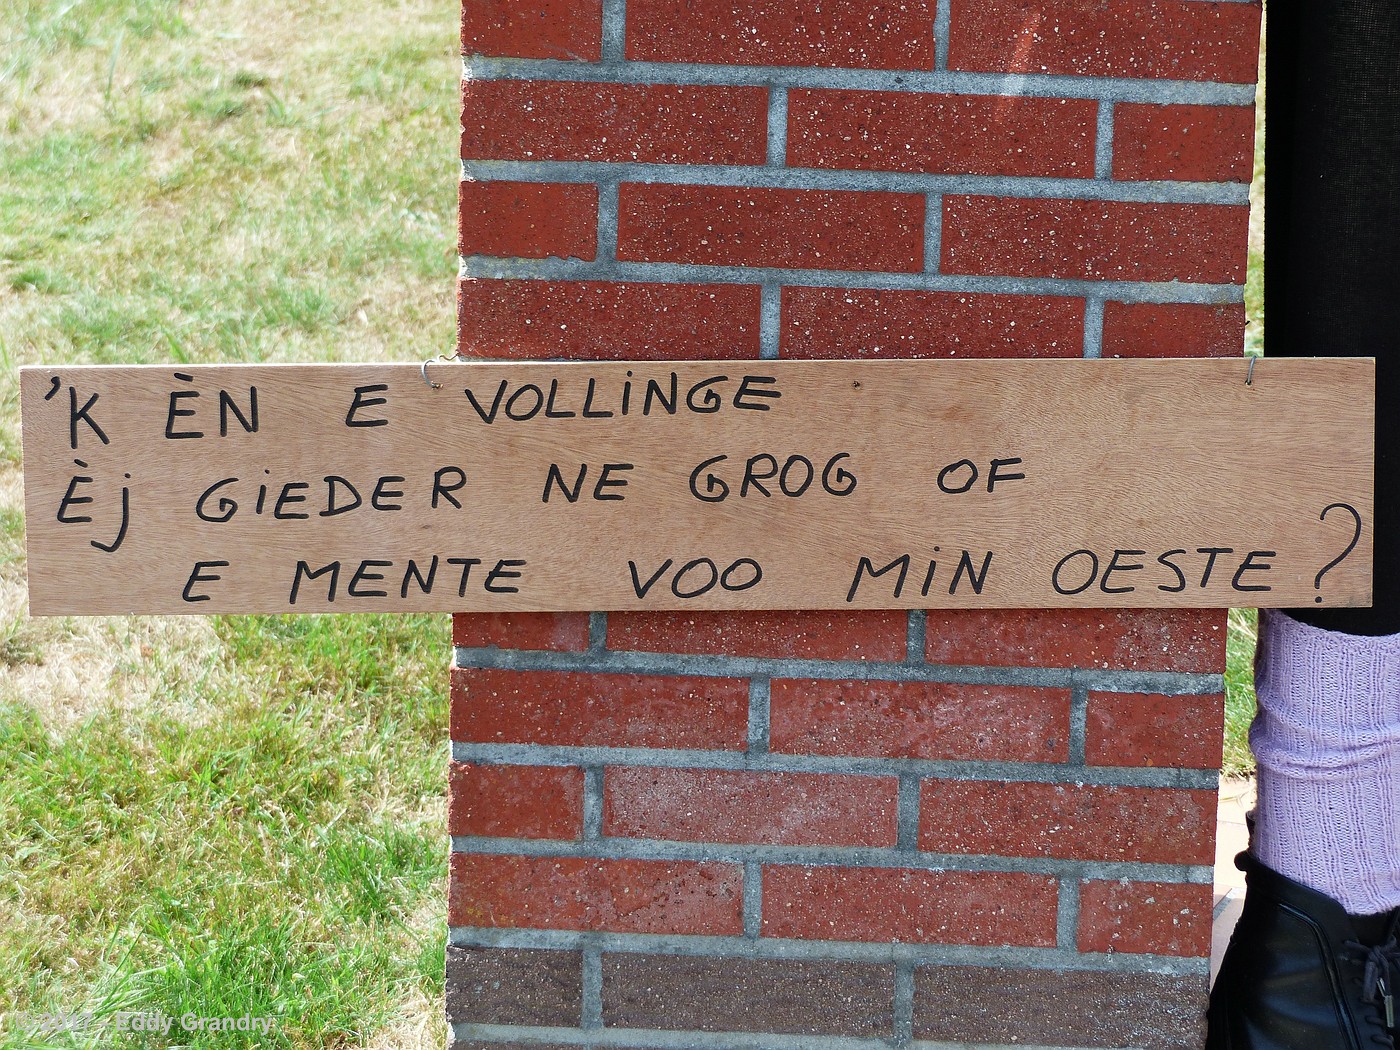 'K ÈN E VOLLiNGE
Èj GiEDER NE GROG OF
E MENTE VOO MiN OESTE ?
© 2017 - Eddy Grandry